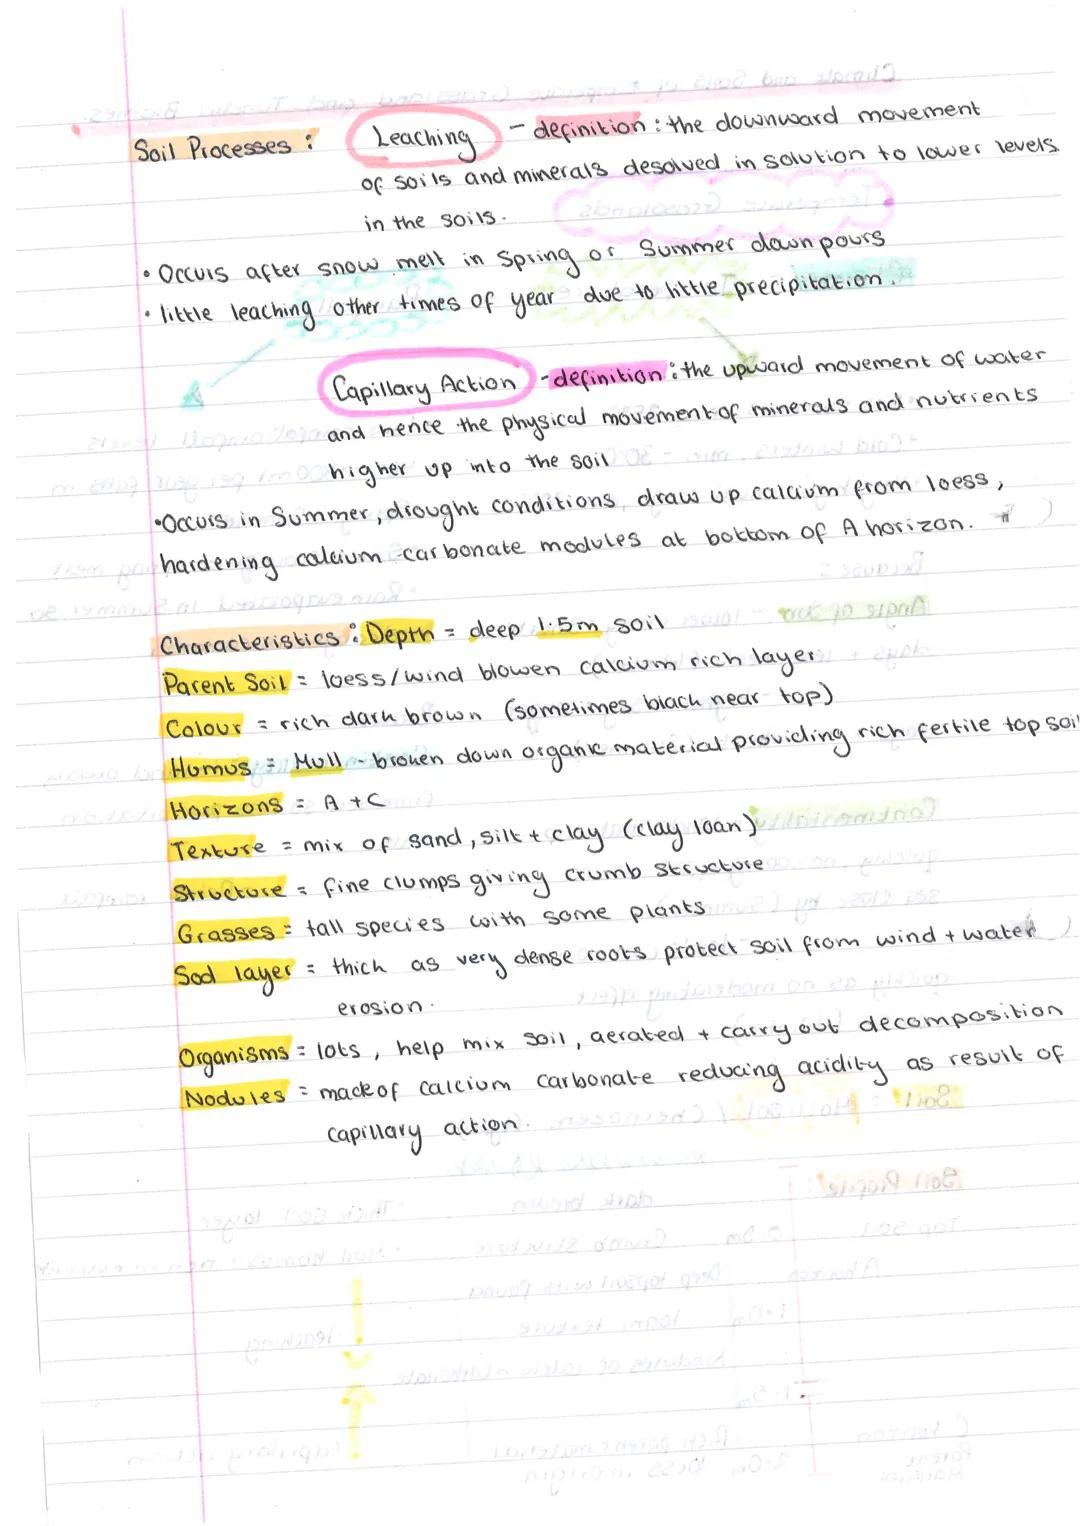 Soil Processes : Leaching - definition : the downward movement
of soils and minerals desolved in solution to lower levels
in the soils.
• Occurs after snow melt in Spring or Summer downpours
• little leaching other times of year due to little precipitation.
Capillary Action - definition : the upward movement of water
and hence the physical movement of minerals and nutrients
higher up into the soil
• Occurs in Summer, drought conditions, draw up calcium from loess,
hardening calcium carbonate modules at bottom of A horizon.
Characteristics : Depth = deep 1.5m soil
Parent Soil = loess/wind blowen calcium rich layer
Colour = rich dark brown (sometimes black near top)
Humus = Mull - broken down organic material providing rich fertile top soil
Horizons = A + C
Texture = mix of sand, silt + clay (clay loan)
Structure = fine clumps giving crumb structure
Grasses = tall species with some plants
Sod layer = thick as very dense roots protect soil from wind + water
erosion.
Organisms = lots, help mix soil, aerated + carry out decomposition
Nodules = made of calcium carbonate reducing acidity as result of
capillary action.